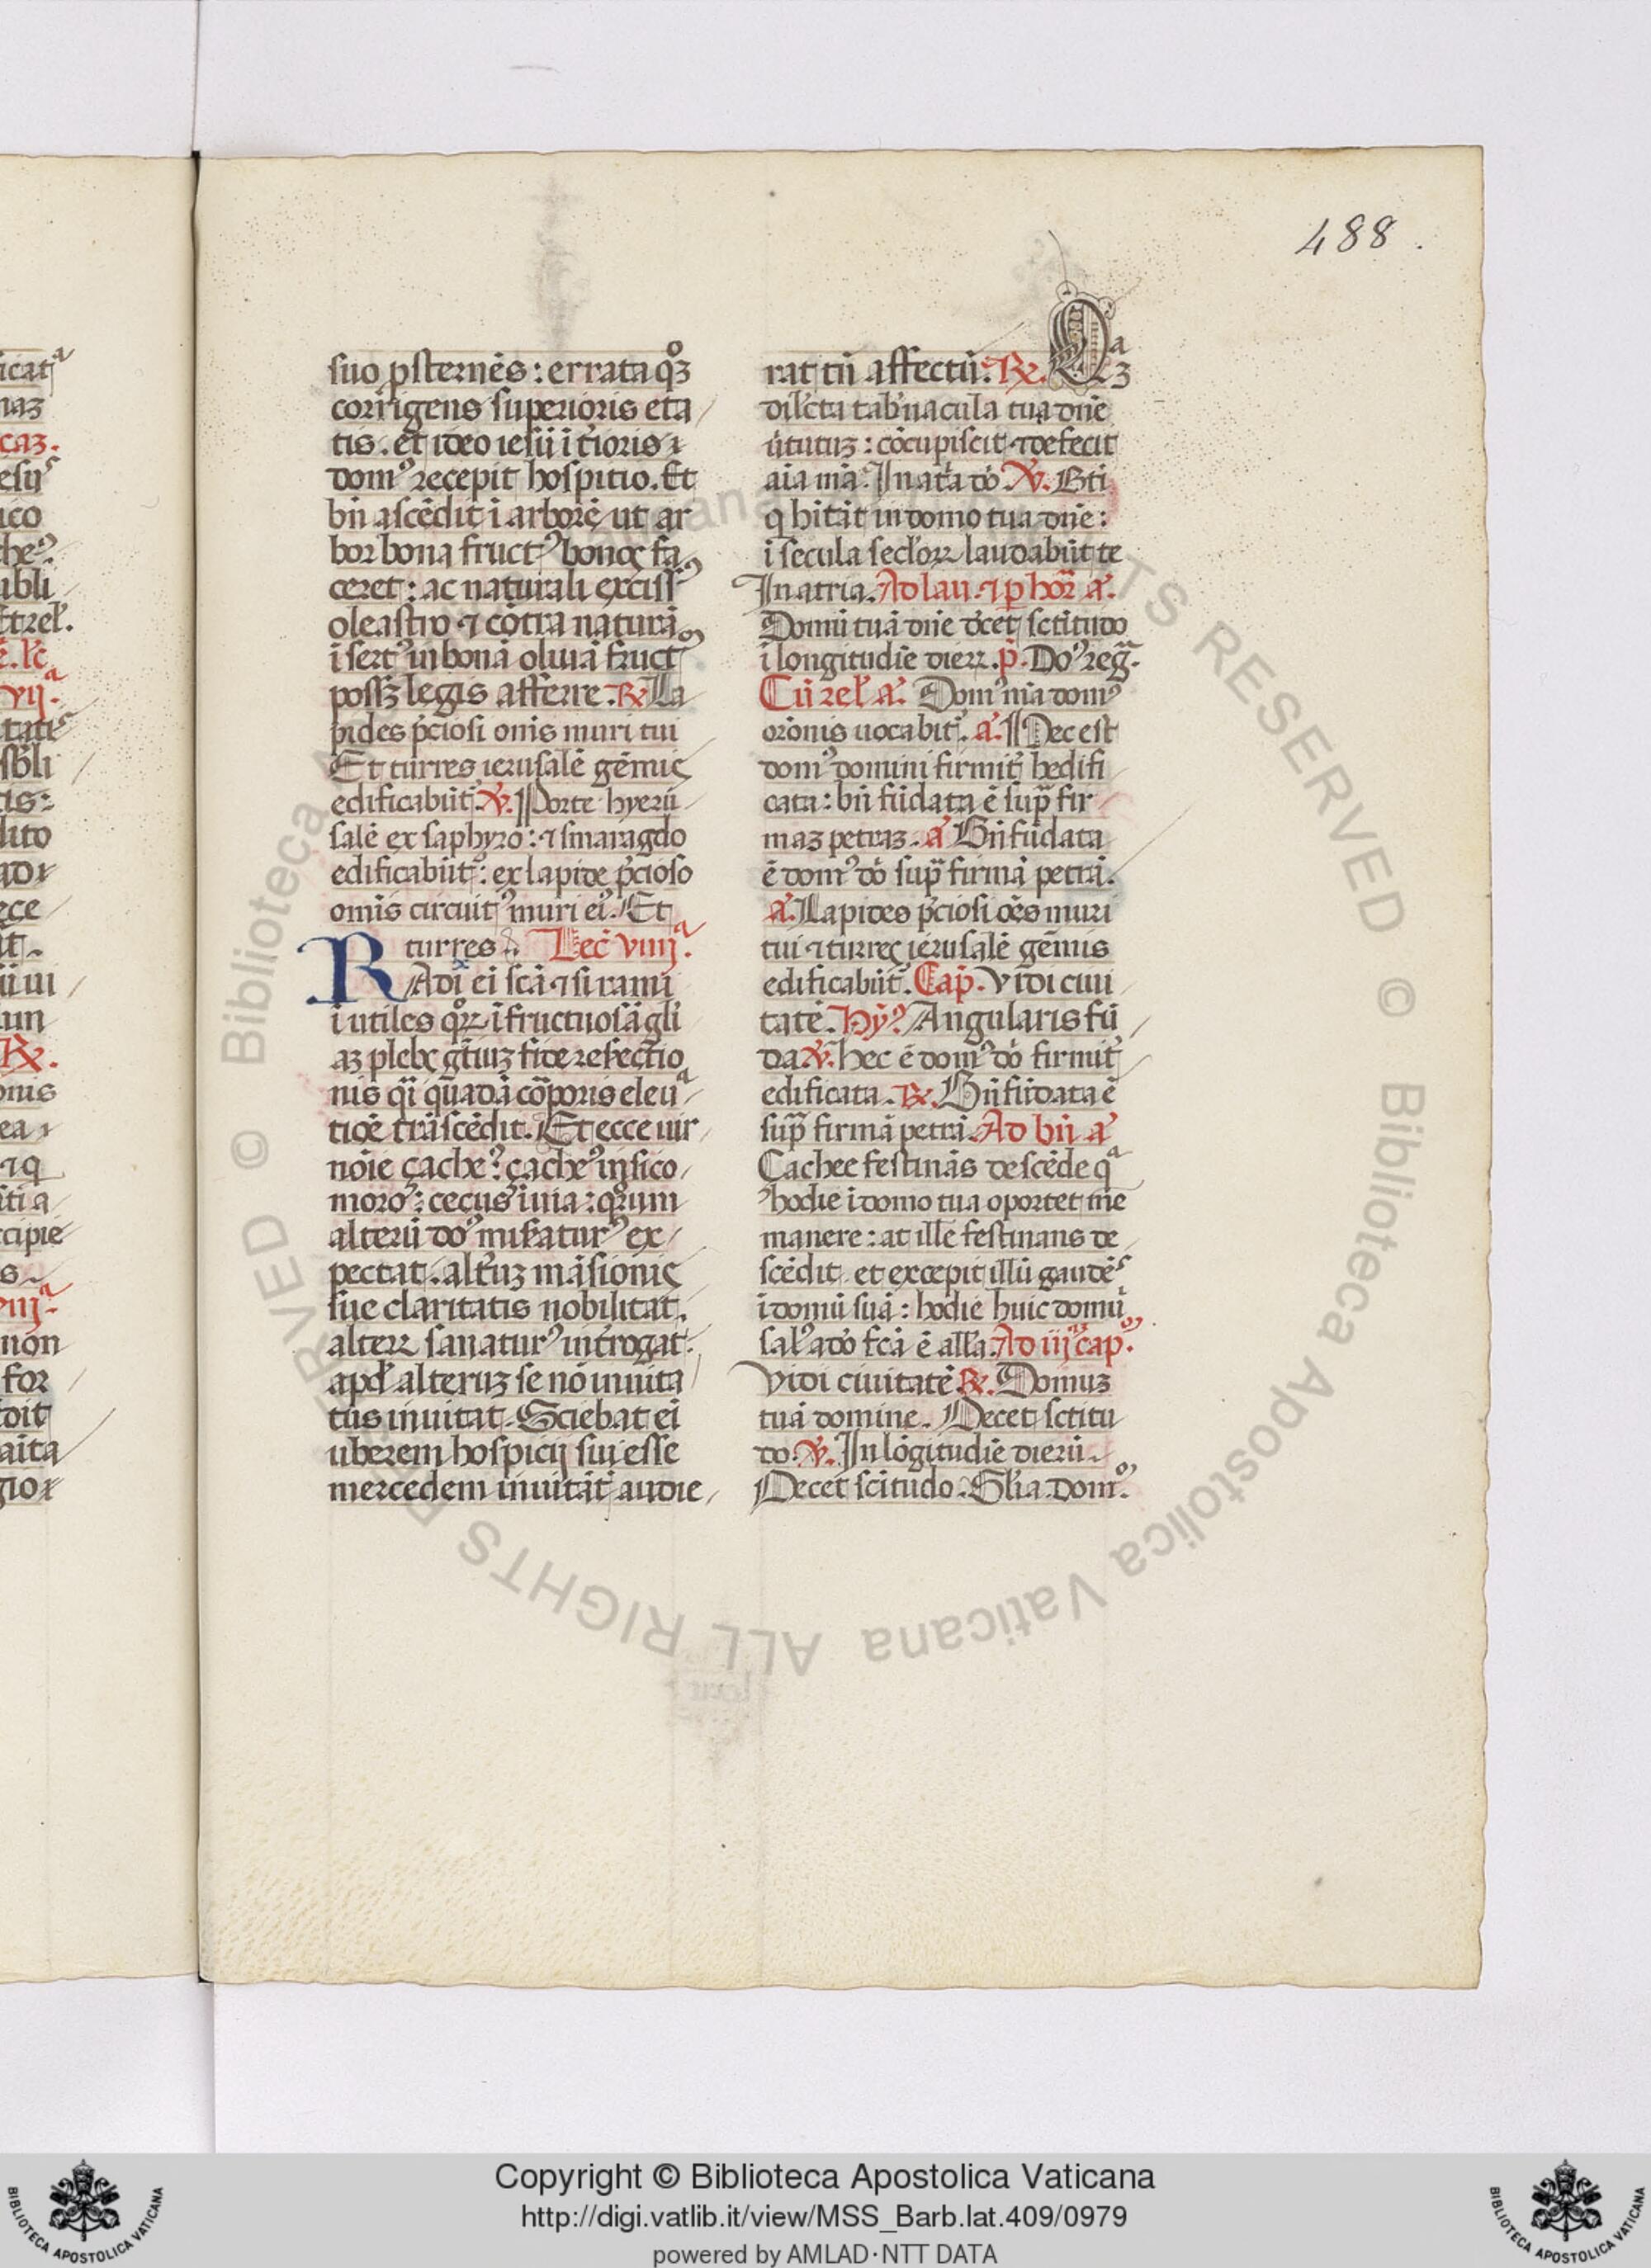 488.
suo ꝓsternēs : errata qͦꝫ
corrigens superioris eta
tis. et ideo iesū ı̄ t̄ioris ı
domꝰ recepit hospitio. Et
bn̄ ascēdit ı̄ arborē ut ar
bor bona fructꝰ bonos fa
ceret : ac naturali excissꝰ
oleastro ⁊ cōtra naturā
ı̄ sertꝰ in bonā oliuā fructꝰ
possꝫ legis afferre. ℟ La
pides p̄ciosi om̄s muri tui
Et turres ierusalē gēmis
edificabūt᷑. ℣. Porte hyerū
salē ex saphyro : ⁊ smaragdo
edificabūt᷑ : ex lapide p̄cioso
om̄is circuitꝰ muri eiꝰ. Et
turres Lec̄ viiijª.
RAdix ei sc̄ā ⁊ si rami
ı̄ utiles
aꝫ plebs fide refectio
nis qͣı qͣadā cōꝑoris eleuª
tiōe trāscēdit. Et ecce uir
nōie çacheꝰ. çacheꝰ in sico
moro : cecus in uia : qͦꝝ um
alterū doꝰ mis̄aturꝰ ex
pectat. alt̄uꝫ māsionis
sue claritatis nobilitat.
alterꝝ sanaturꝰ int̄rogat.
apd̄ alteruꝫ se nō inuita
tus inuitat. Sciebat ei
uberem hospicij sui esse
mercedem inuitāt᷑ audie
rat tn̄ affectū. ℟. Qªꝫ
dil̄cta tab̄nacula tua dn̄e
ūtutuꝫ : cōcupiscit ⁊ defecit
aīa mā. In at͛a dō ℣. Bt̄i
q hītāt in domo tua dn̄e :
ı̄ secula secl̄oꝝ laudabūt te
In atria. Ad lau. ⁊ ꝑ hōr añ.
Domū tuā dn̄e dec̄et sc̄titudo
ı̄ longitudīe dieꝝ. p̄. Doꝰ regͣ.
Cū rel̄ añ. Domꝰ mā domꝰ
or̄onis uocabit᷑. añ. Hec est
domꝰ domini firmit᷑ hedifi
cata : bn̄ fūdata ē sup̄ fir
maꝫ petraꝫ. añ Bn̄ fūdata
ē domꝰ dō sup̄ firmā petrā.
añ. Lapides p̄ciosi oēs muri
tui ⁊ turres ierusalē gēmis
edificabūt᷑. Cap̄. Vidi ciui
tatē. Hȳꝰ. Angularis fū
da ℣. hec ē domꝰ dō firmit᷑
edificata. ℟. Bn̄ fūdata ē
sup̄ firmā petrā. Ad bn̄ añ
Cachee festinās descēde qª
hodie ı̄ domo tua oportet me
manere : at ille festinans de
scēdit. et excepit illū gaudēˢ
ı̄ domū suā : hodie huic domū
salꝰ adō fc̄ā ē all̄a. Ad iijª cap̄.
Vidi ciuitatē ℟. Domuꝫ
tuā domine. Decet sc̄titu
do. ℣. In lōgitudīe dierū.
Decet sc̄itudo. Gl̄ia. Domꝰ.
© Biblioteca Apostolica Vaticana ALL RIGHTS RESERVED
Copyright © Biblioteca Apostolica Vaticana
http://digi.vatlib.it/view/MSS_Barb.lat.409/0979
powered by AMLAD·NTT DATA
BIBLIOTECA APOSTOLICA VATICANA
BIBLIOTECA APOSTOLICA VATICANA